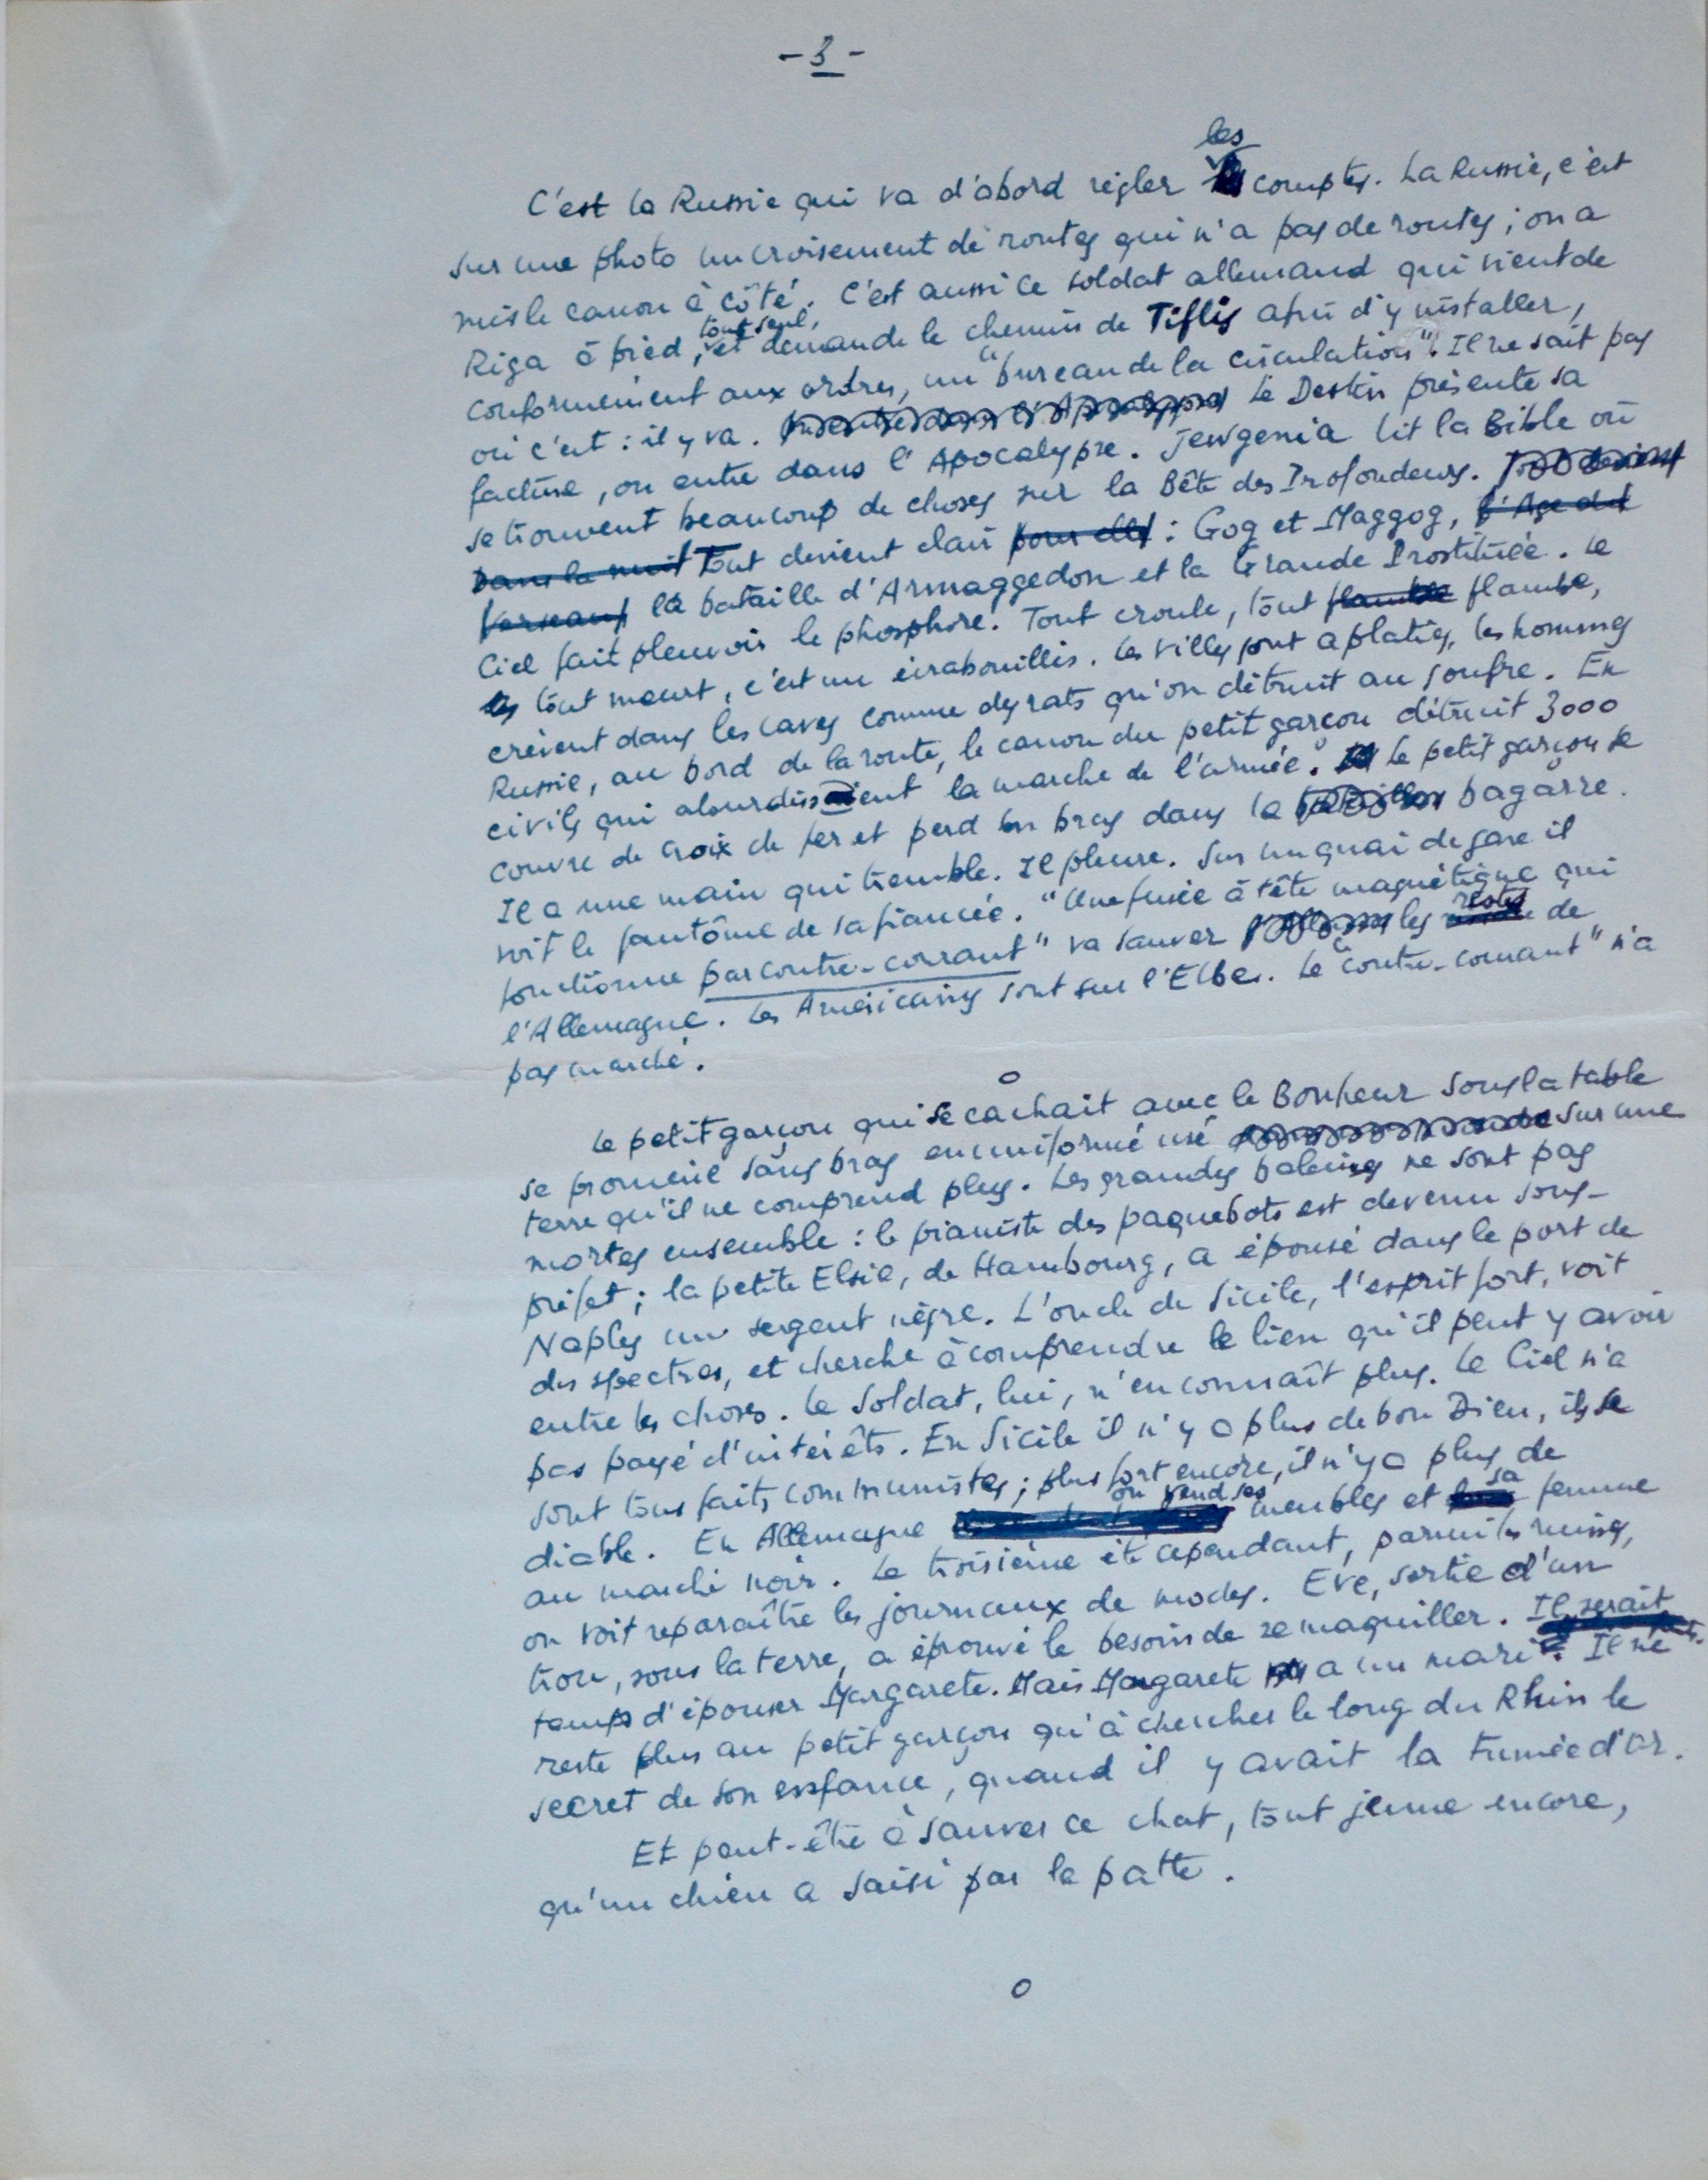 - 3 -
les
C'est la Russie qui va d'abord régler comptes. La Russie, c'est
sur une photo un croisement de routes qui n'a pas de routes ; on a
mis le canon à côté. C'est aussi ce soldat allemand qui vient de
tout seul,
Riga à pied, et demande le chemin de Tiflis afin d'y installer,
conformément aux ordres, un "bureau de la circulation". Il ne sait pas
où c'est : il y va. Le Destin présente sa
facture, on entre dans l'Apocalypse. Jewgenia lit la Bible où
se trouvent beaucoup de choses sur la Bête des Profondeurs.
Dans la nuit Tout devient clair pour elle : Gog et Maggog, l'Age du
Verseau, la bataille d'Armaggedon et la Grande Prostituée. Le
Ciel fait pleuvoir le phosphore. Tout croule, tout flambe flambe,
tout meurt, c'est un écrabouillis. Les villes sont aplaties, les hommes
crèvent dans les caves comme des rats qu'on détruit au soufre. En
Russie, au bord de la route, le canon du petit garçon détruit 3000
civils qui alourdissaient la marche de l'armée. Le petit garçon se
couvre de croix de fer et perd un bras dans la bagarre.
Il a une main qui tremble. Il pleure. Sur un quai de gare il
voit le fantôme de sa fiancée. "Une fusée à tête magnétique qui
restes
fonctionne par contre-courant" va sauver les de
l'Allemagne. Les Américains sont sur l'Elbe. Le "contre-courant" n'a
pas marché.
o
Le petit garçon qui se cachait avec le Bonheur sous la table
se promène sans bras en uniforme usé sur une
terre qu'il ne comprend plus. Les grandes baleines ne sont pas
mortes ensemble : le pianiste des paquebots est devenu sous-
préfet ; la petite Elsie, de Hambourg, a épousé dans le port de
Naples un sergent nègre. L'oncle de Sicile, l'esprit fort, voit
des spectres, et cherche à comprendre le lien qu'il peut y avoir
entre les choses. Le soldat, lui, n'en connaît plus. Le Ciel n'a
pas payé d'intérêts. En Sicile il n'y a plus de bon Dieu, ils se
sont tous faits communistes ; plus fort encore, il n'y a plus de
on vend ses sa
diable. En Allemagne meubles et femme
au marché noir. Le troisième été cependant, parmi les ruines,
on voit reparaître les journaux de modes. Eve, sortie d'un
trou, sous la terre, a éprouvé le besoin de se maquiller. Il serait
temps d'épouser Margarete. Mais Margarete a un mari. Il ne
reste plus au petit garçon qu'à chercher le long du Rhin le
secret de son enfance, quand il y avait la Fumée d'Or.
Et peut-être à sauver ce chat, tout jeune encore,
qu'un chien a saisi par la patte.
o